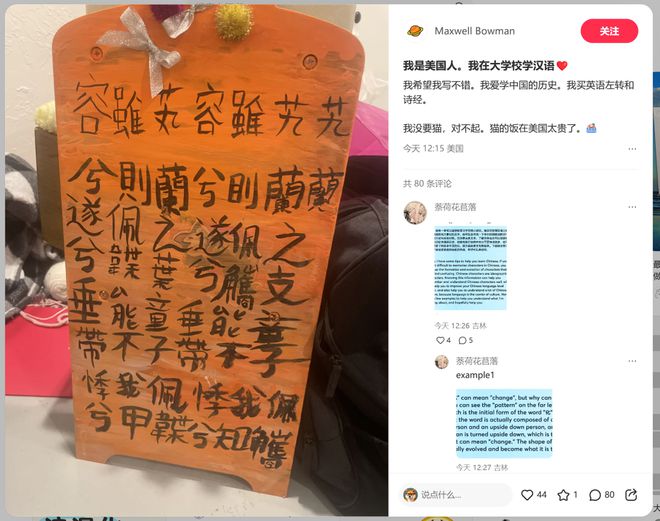 芄蘭之支童子佩觿
雖則佩觿能不我知
容兮遂兮垂帶悸兮
芄蘭之葉童子佩韘
雖則佩韘能不我甲
容兮遂兮垂帶悸兮
Maxwell Bowman
关注
我是美国人。我在大学校学汉语❤️
我希望我写不错。我爱学中国的历史。我买英语左转和
诗经。
我没要猫，对不起。猫的饭在美国太贵了。
今天 12:15 美国
共 80 条评论
萘荷花菖落
今天 12:26 吉林
4 5
萘荷花菖落
example1
" can mean "change", but why can
can see the "pattern" on the for le
ch is the initial form of the word "化"
the word is actually composed of a
erson and an upside down person, an
n is turned upside down, which is t
t can mean "change." The shape of
ally evolved and become what it is t
今天 12:27 吉林
说点什么...
44 1 80